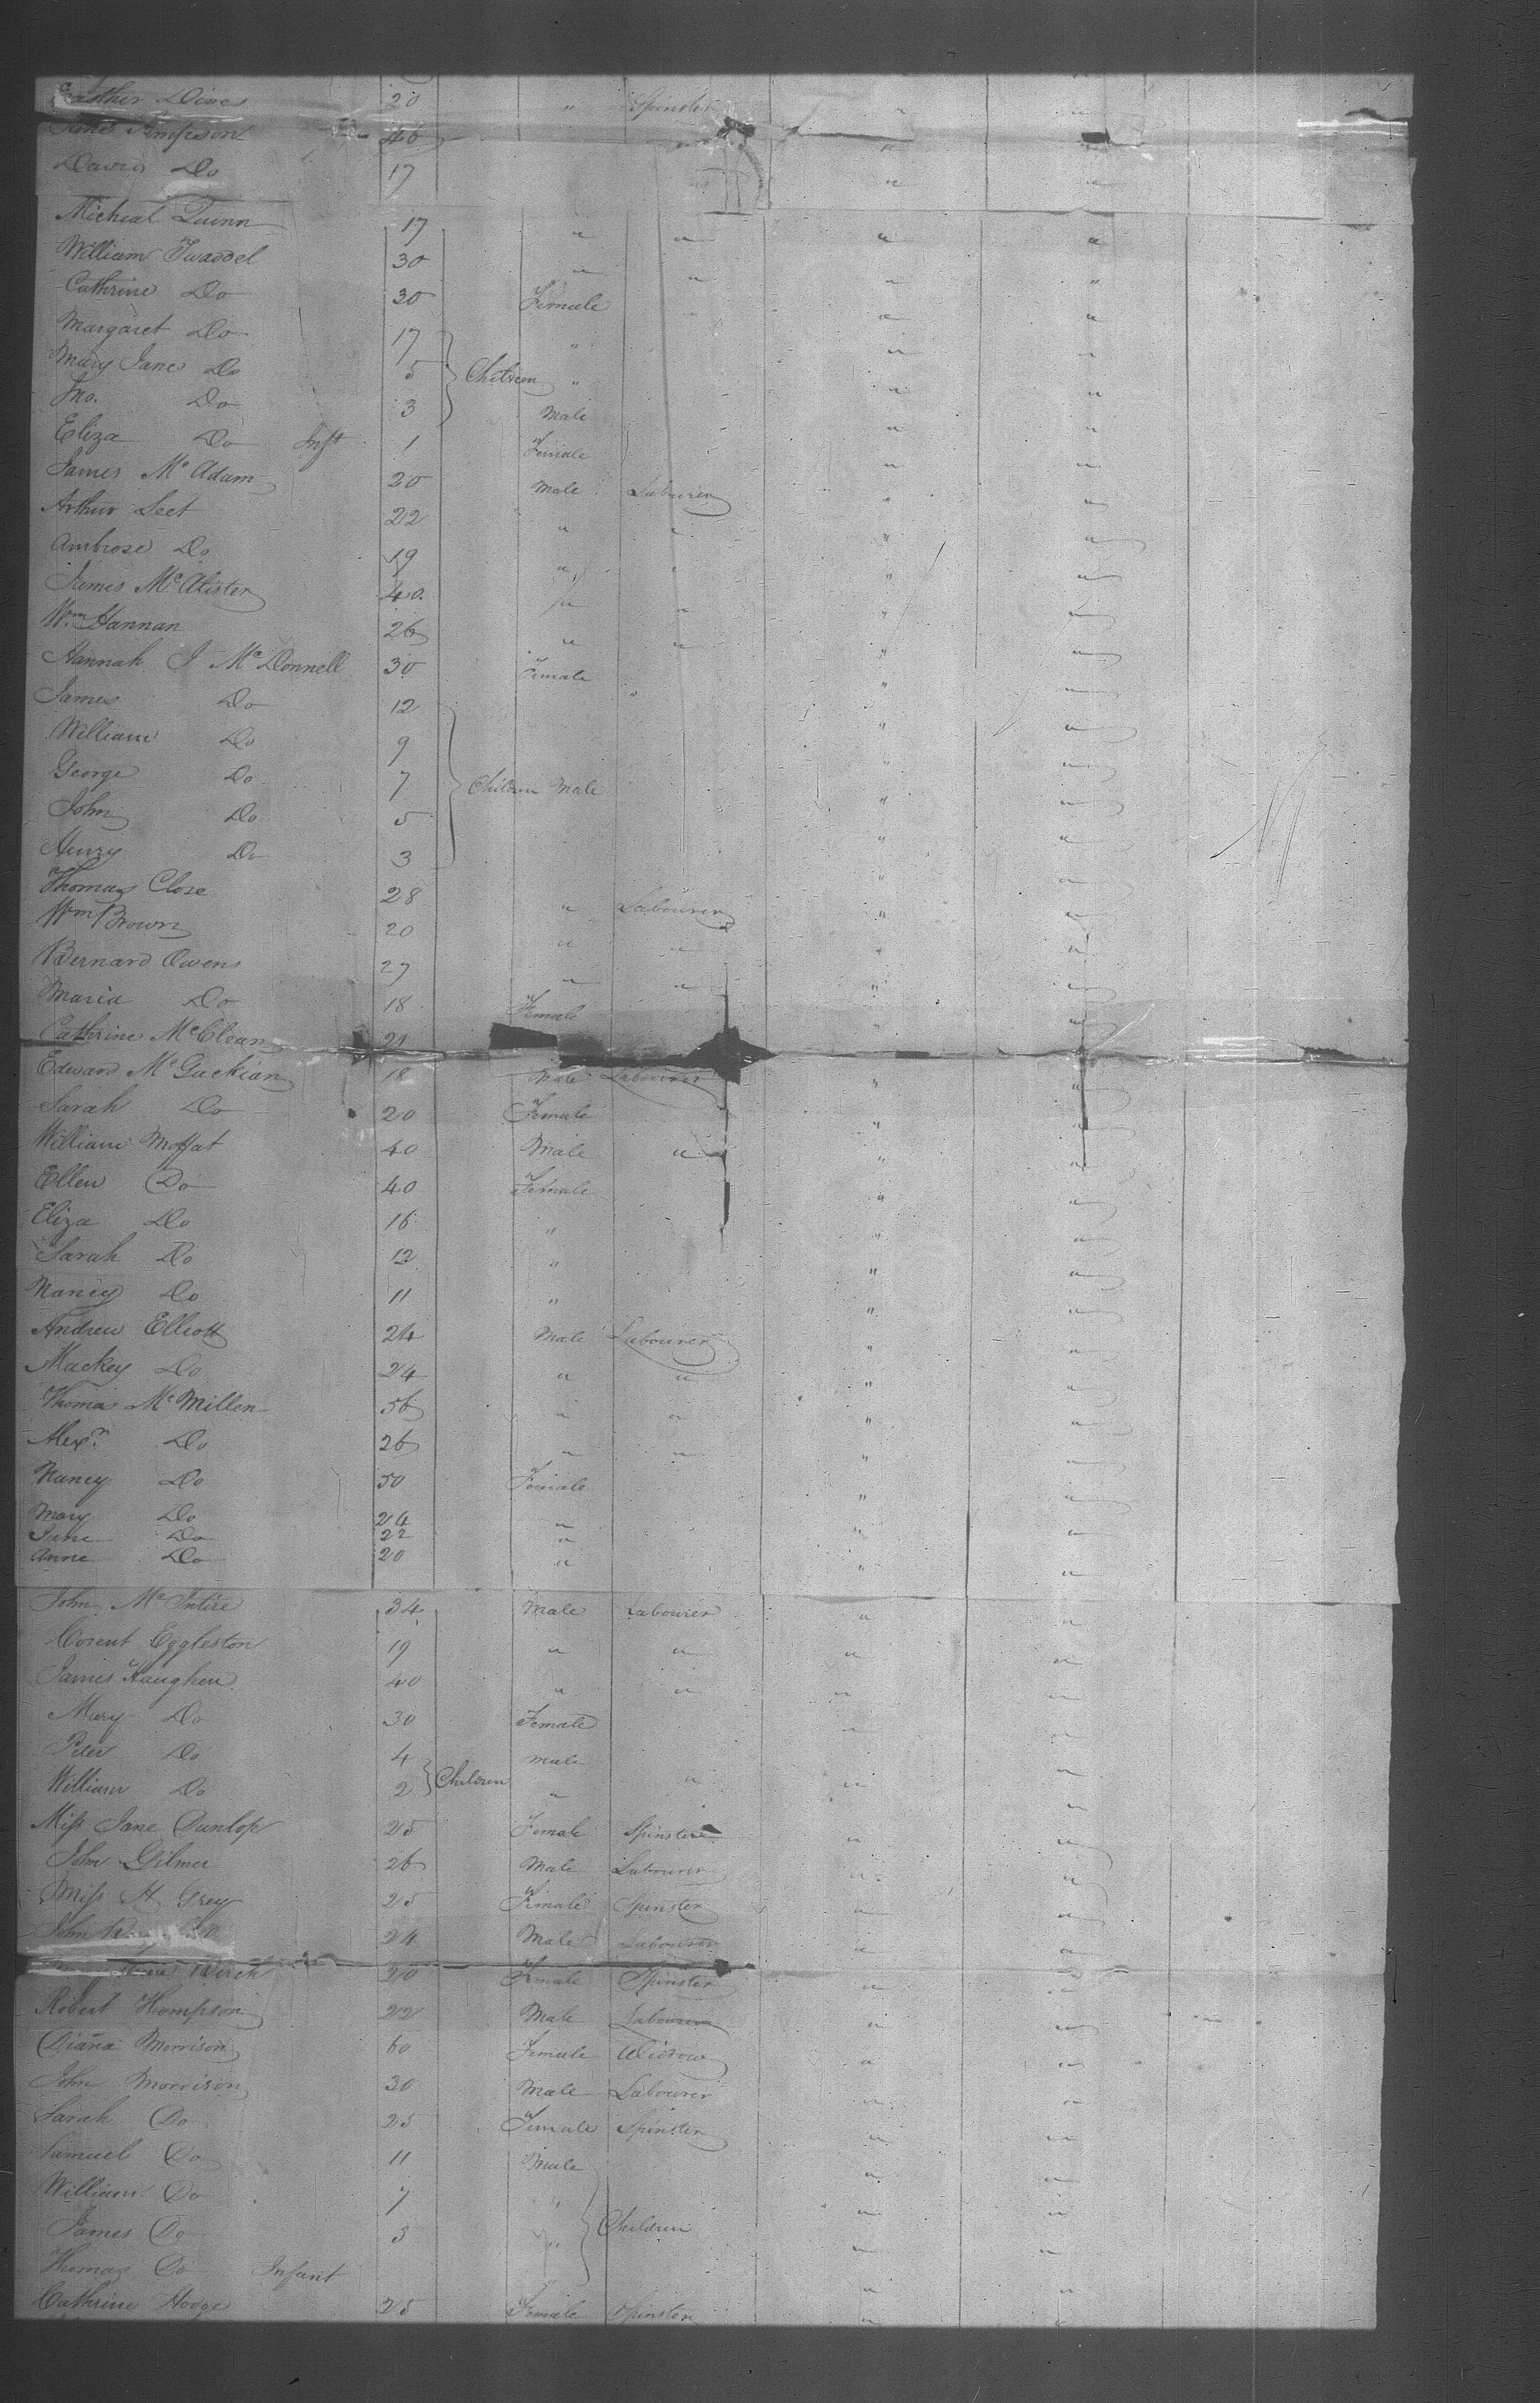 Easther Dives 20 " Spinster " "
Jane Simpson 46 " " "
David Do 17 " " "
Micheal Quinn 17 " " " "
William Twaddel 30 " " " "
Cathrine Do 30 Female " "
Margaret Do 17 " " "
Mary Jane Do 5 Children " " "
Jno. Do 3 Male " "
Eliza Do Inft 1 Female " "
James Mc Adam 20 Male Labourer " "
Arthur Leet 22 " " " "
Ambrose Do 19 " " " "
James Mc Alister 40 " " " "
Wm Hannan 26 " " " "
Hannah J Mc Donnell 30 Female " " "
James Do 12 " "
William Do 9 " "
George Do 7 Children Male " "
John Do 5 " "
Henry Do 3 " "
Thomas Close 28 " Labourer " "
Wm Brown 20 " " " "
Bernard Owens 27 " " " "
Maria Do 18 Female " "
Cathrine Mc Clean 21
Edward Mc Guckian 18 Male Labourer " "
Sarah Do 20 Female " "
William Moffat 40 Male " " "
Ellen Do 40 Female " "
Eliza Do 16 " " "
Sarah Do 12 " " "
Nancy Do 11 " " "
Andrew Elliott 24 Male Labourer " "
Mackey Do 24 " " " "
Thomas Mc Millen 56 " " " "
Alexr. Do 26 " " " "
Nancy Do 50 Female " "
Mary Do 24 " " "
Jane Do 22 "
Anne Do 20 " " "
John Mc Intire 34 Male Labourer " "
Eggleston 19 " " " "
James Haughen 40 " " " "
Mary Do 30 Female " "
Peter Do 4 Male "
William Do 2 Children " " " "
Miss Jane Dunlop 25 Female Spinster " "
John Gilmer 26 Male Labourer " "
Miss H Grey 25 Female Spinster " "
John 24 Male Labourer " "
20 Female Spinster " "
Robert Thompson 22 Male Labourer " "
Diana Morrison 60 Female Widow " "
John Morrison 30 Male Labourer " "
Sarah Do 25 Female Spinster " "
Samuel Do 11 Male " "
William Do 7 " Children " "
James Do 3 " " "
Thomas Do Infant " "
Cathrine Hodge 25 Female Spinster " "